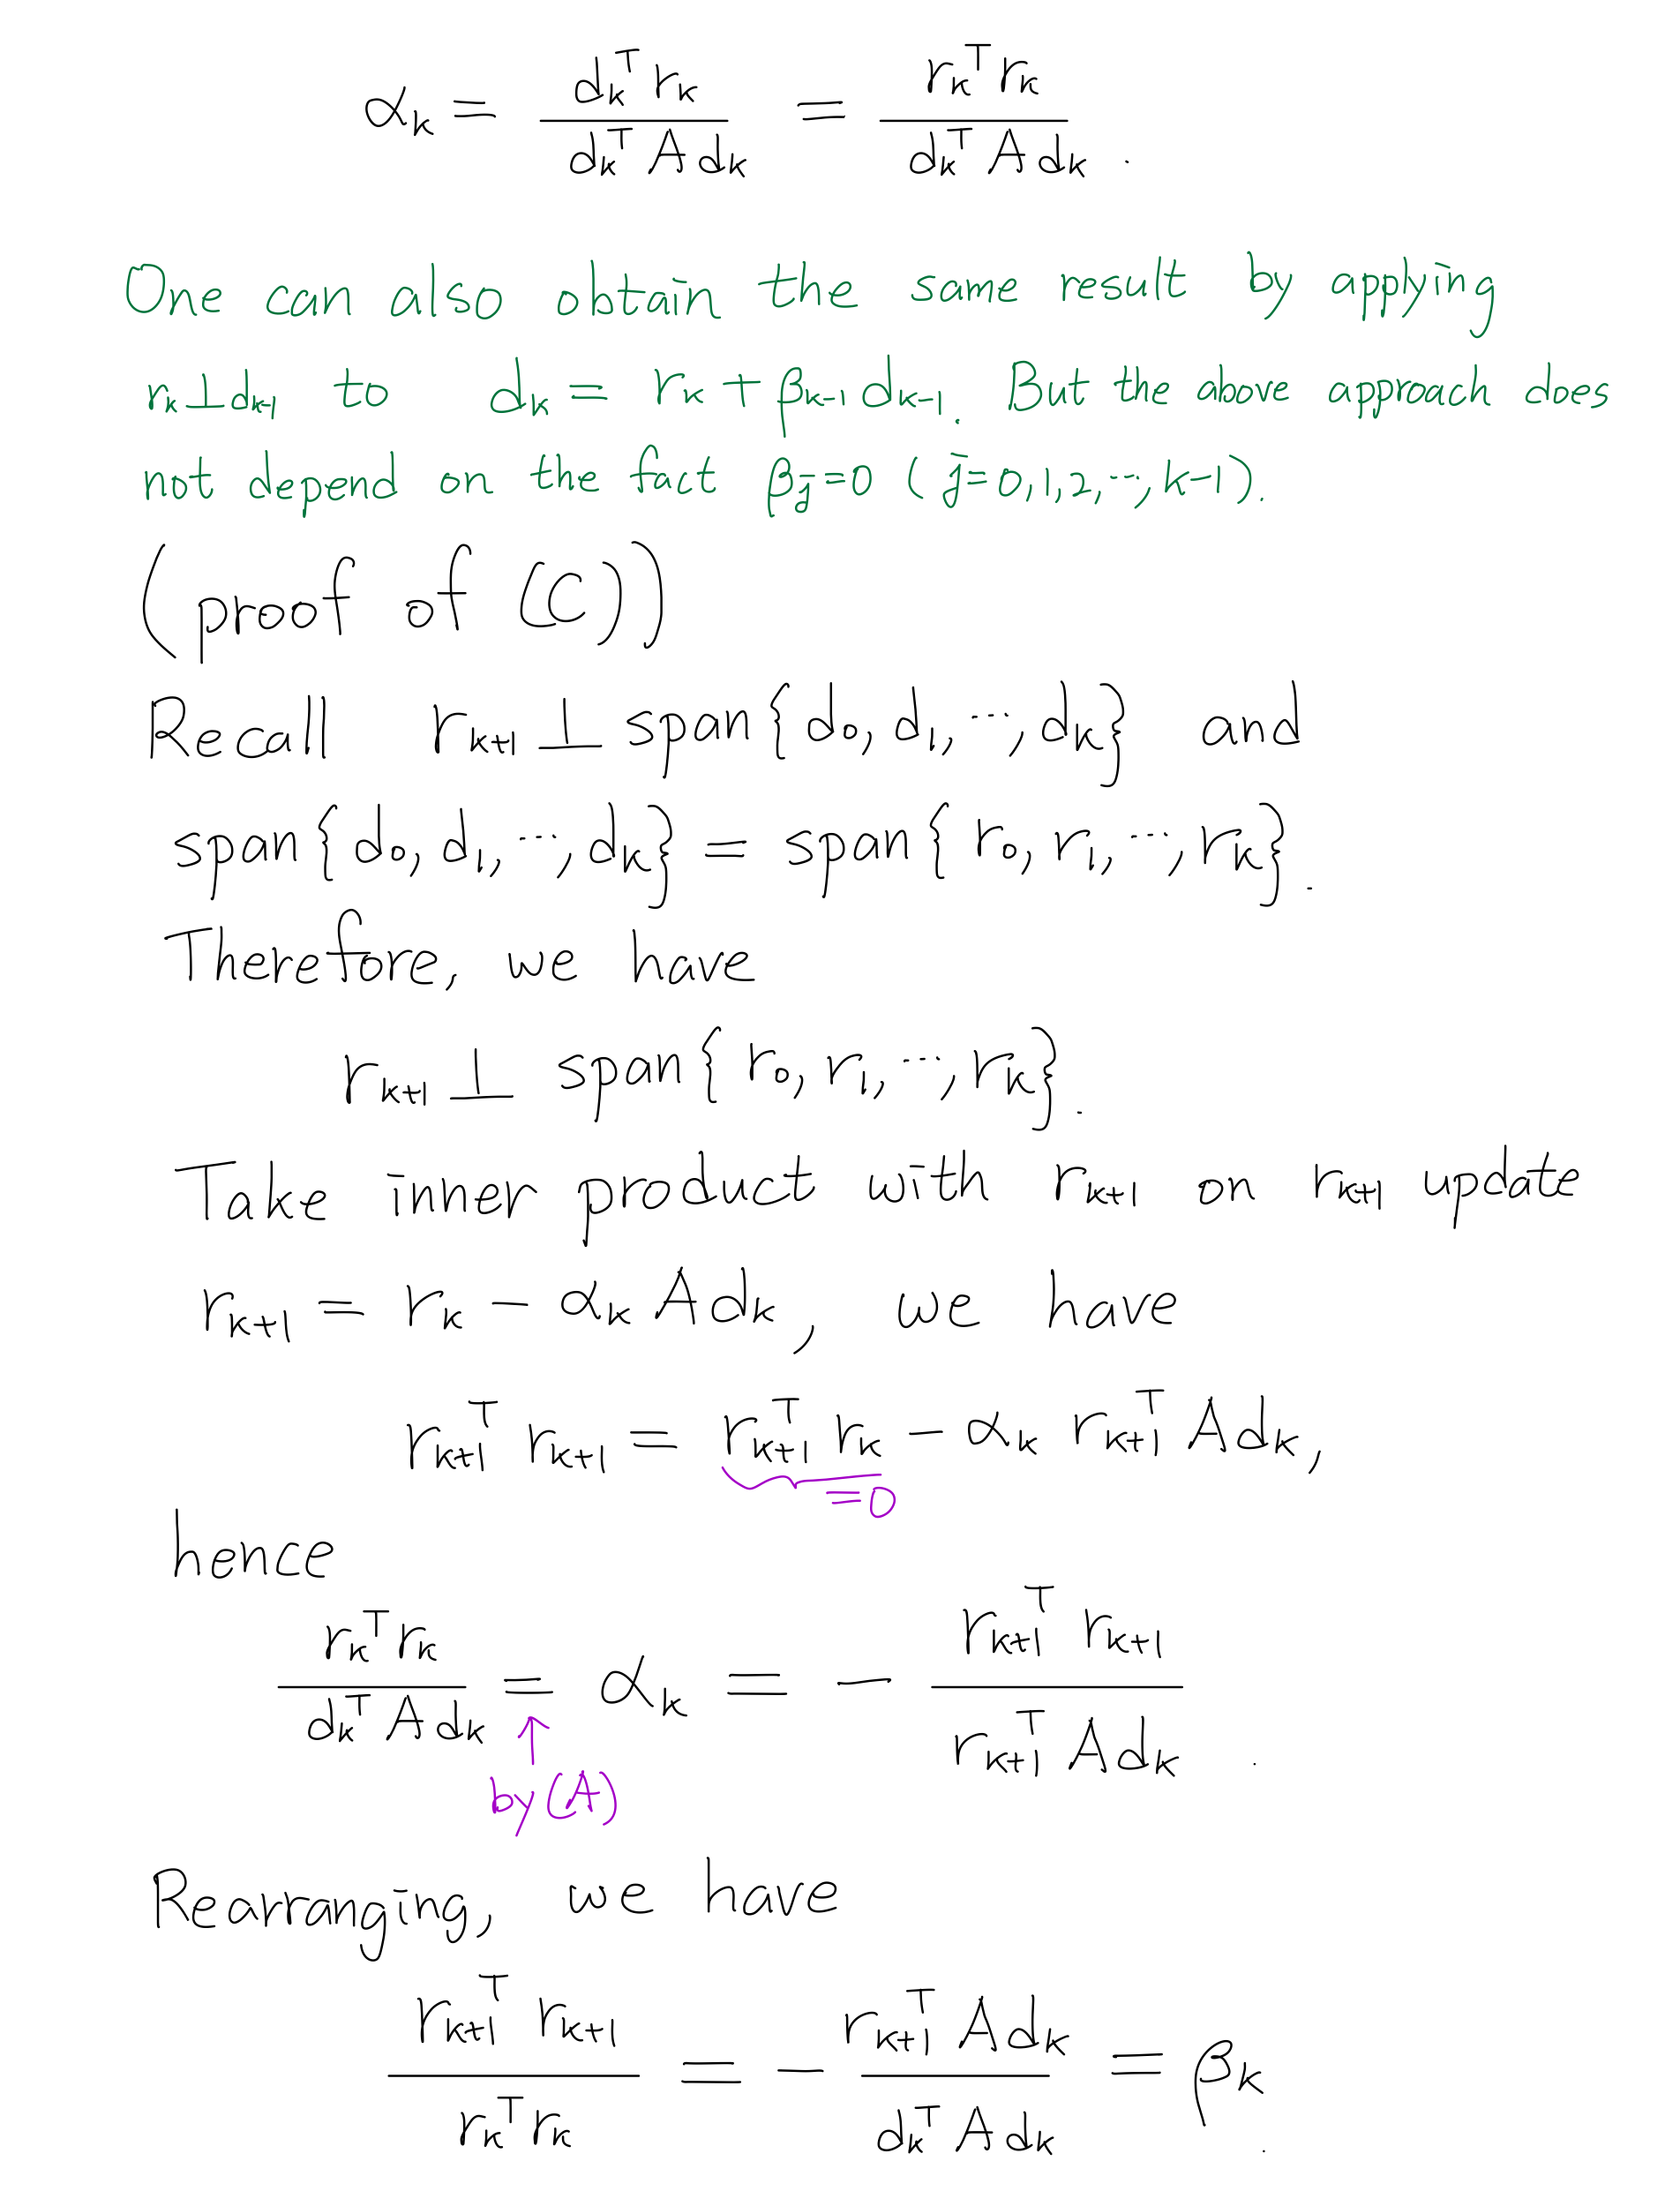 αₖ = dₖᵀ rₖ / dₖᵀ A dₖ = rₖᵀ rₖ / dₖᵀ A dₖ .
One can also obtain the same result by applying
rₖ ⊥ dₖ₋₁ to dₖ = rₖ + βₖ₋₁ dₖ₋₁. But the above approach does
not depend on the fact βⱼ = 0 (j = 0, 1, 2, ⋯, k-1).
(proof of (C))
Recall rₖ₊₁ ⊥ span{d₀, d₁, ⋯, dₖ} and
span{d₀, d₁, ⋯, dₖ} = span{r₀, r₁, ⋯, rₖ}.
Therefore, we have
rₖ₊₁ ⊥ span{r₀, r₁, ⋯, rₖ}.
Take inner product with rₖ₊₁ on rₖ₊₁ update
rₖ₊₁ = rₖ - αₖ A dₖ, we have
rₖ₊₁ᵀ rₖ₊₁ = rₖ₊₁ᵀ rₖ - αₖ rₖ₊₁ᵀ A dₖ,
=0
hence
rₖᵀ rₖ / dₖᵀ A dₖ = αₖ = - rₖ₊₁ᵀ rₖ₊₁ / rₖ₊₁ᵀ A dₖ .
↑
by (A)
Rearranging, we have
rₖ₊₁ᵀ rₖ₊₁ / rₖᵀ rₖ = - rₖ₊₁ᵀ A dₖ / dₖᵀ A dₖ = βₖ .